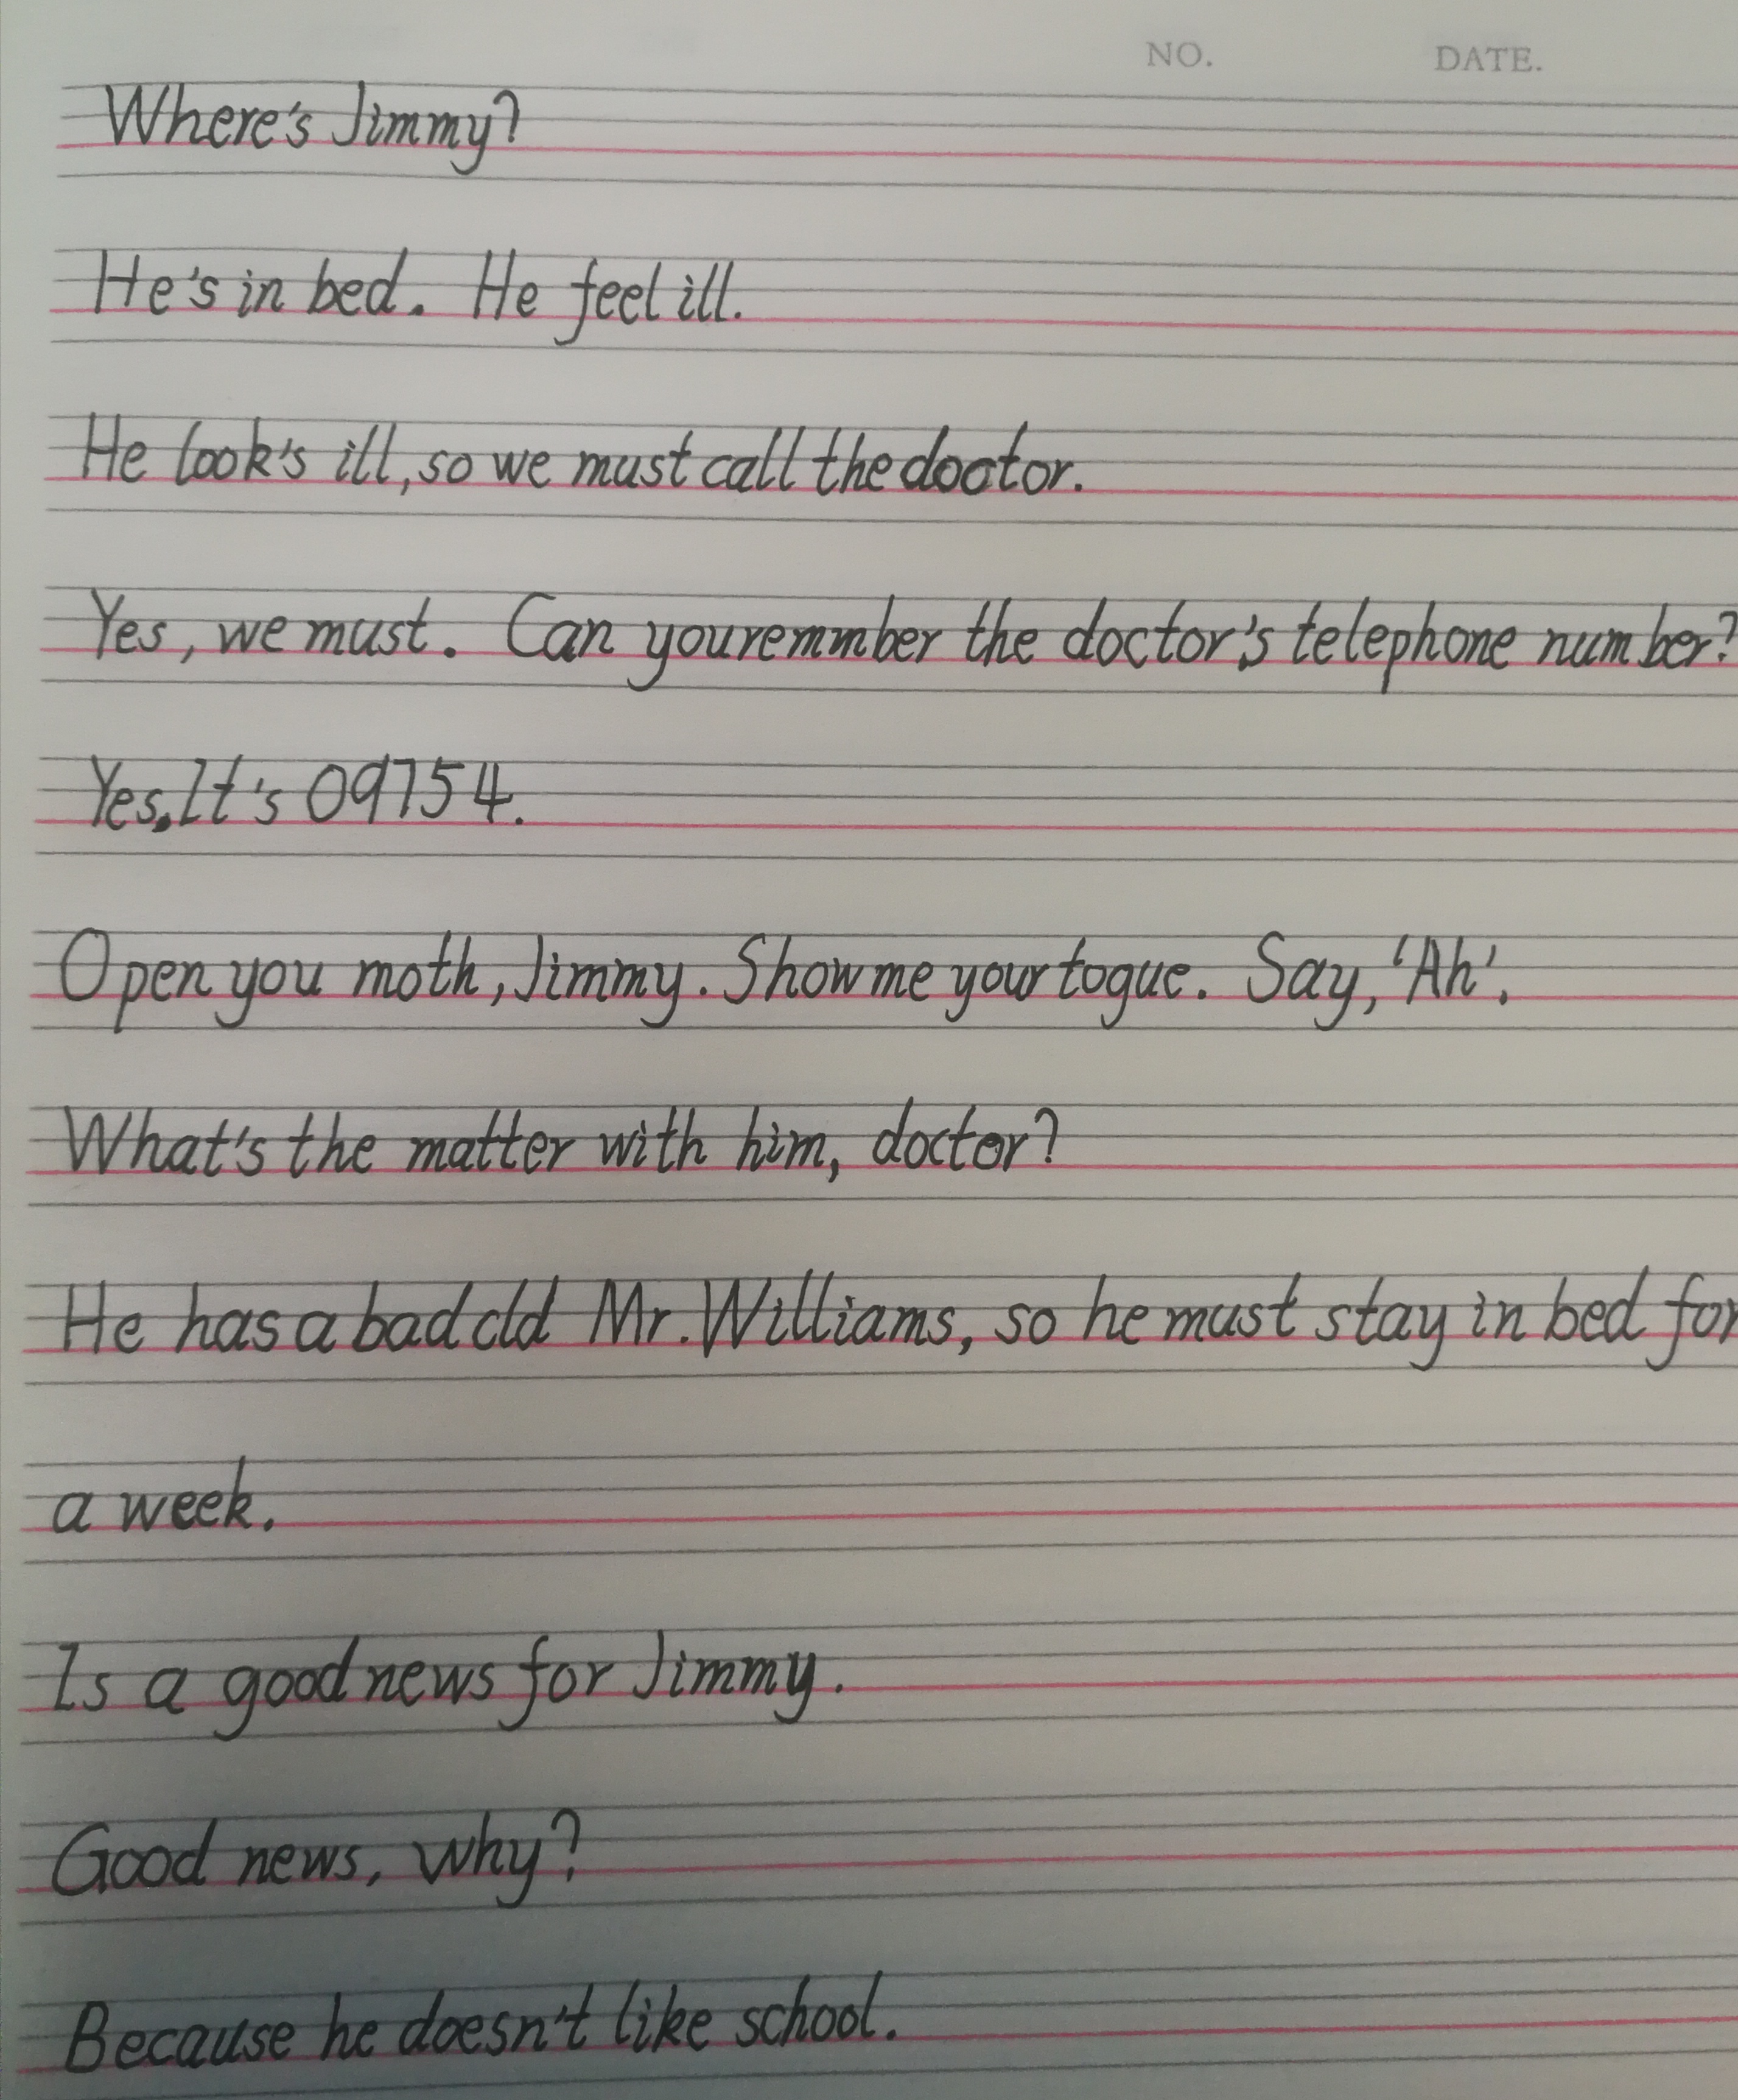 NO. DATE.
Where's Jimmy?
He's in bed. He feel ill.
He look's ill, so we must call the dootor.
Yes, we must. Can you remmber the doctor's telephone number?
Yes. It's 09754.
Open you moth, Jimmy. Show me your togue. Say, 'Ah'.
What's the matter with him, doctor?
He has a bad cld Mr. Williams, so he must stay in bed for
a week.
Is a good news for Jimmy.
Good news, why?
Because he doesn't like school.